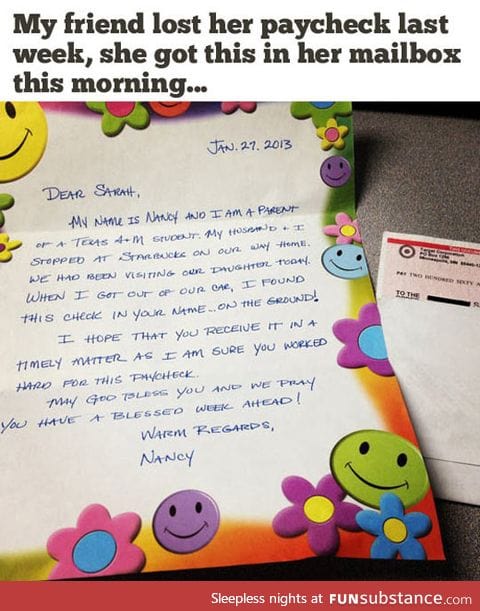 My friend lost her paycheck last
week, she got this in her mailbox
this morning...
JAN. 27. 2013
DEAR SARAH,
MY NAME IS NANCY AND I AM A PARENT
OF A TEXAS A+M STUDENT. MY HUSBAND + I
STOPPED AT STARBUCKS ON OUR WAY HOME.
WE HAD BEEN VISITING OUR DAUGHTER TODAY.
WHEN I GOT OUT OF OUR CAR, I FOUND
THIS CHECK IN YOUR NAME...ON THE GROUND!
I HOPE THAT YOU RECEIVE IT IN A
TIMELY MATTER AS I AM SURE YOU WORKED
HARD FOR THIS PAYCHECK.
MAY GOD BLESS YOU AND WE PRAY
YOU HAVE A BLESSED WEEK AHEAD!
WARM REGARDS,
NANCY
Target Corporation
PO Box 1296
Minneapolis, MN
PAY TWO HUNDRED SIXTY
TO THE
Sleepless nights at FUNsubstance.com